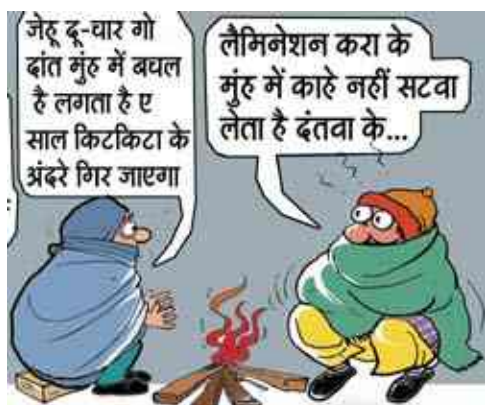 जेहू दू-चार गो
दांत मुंह में बचल
है लगता है ए
साल किटकिटा के
अंदरे गिर जाएगा
लैमिनेशन करा के
मुंह में काहे नहीं सटवा
लेता है दंतवा के...